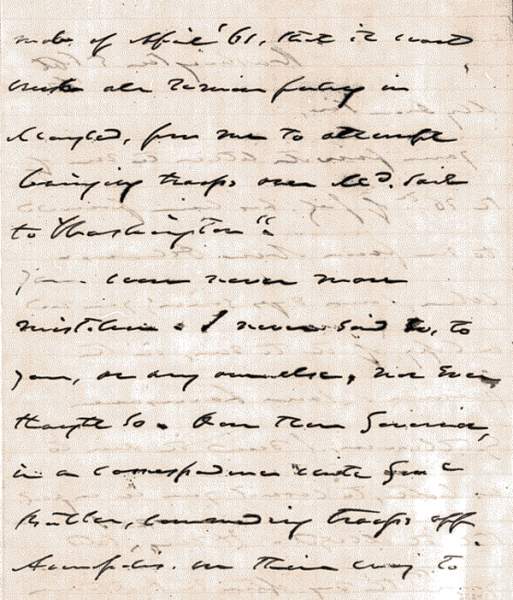 of April '61, that it would
crush all Union feeling in
Maryland, for me to attempt
bringing troops over Md. soil
to Washington".
You were never more
mistaken. I never said so, to
you, or any one else, nor even
thought so. Our then Governor,
in a correspondence with Gen'l
Butler, commanding troops off
Annapolis on their way to